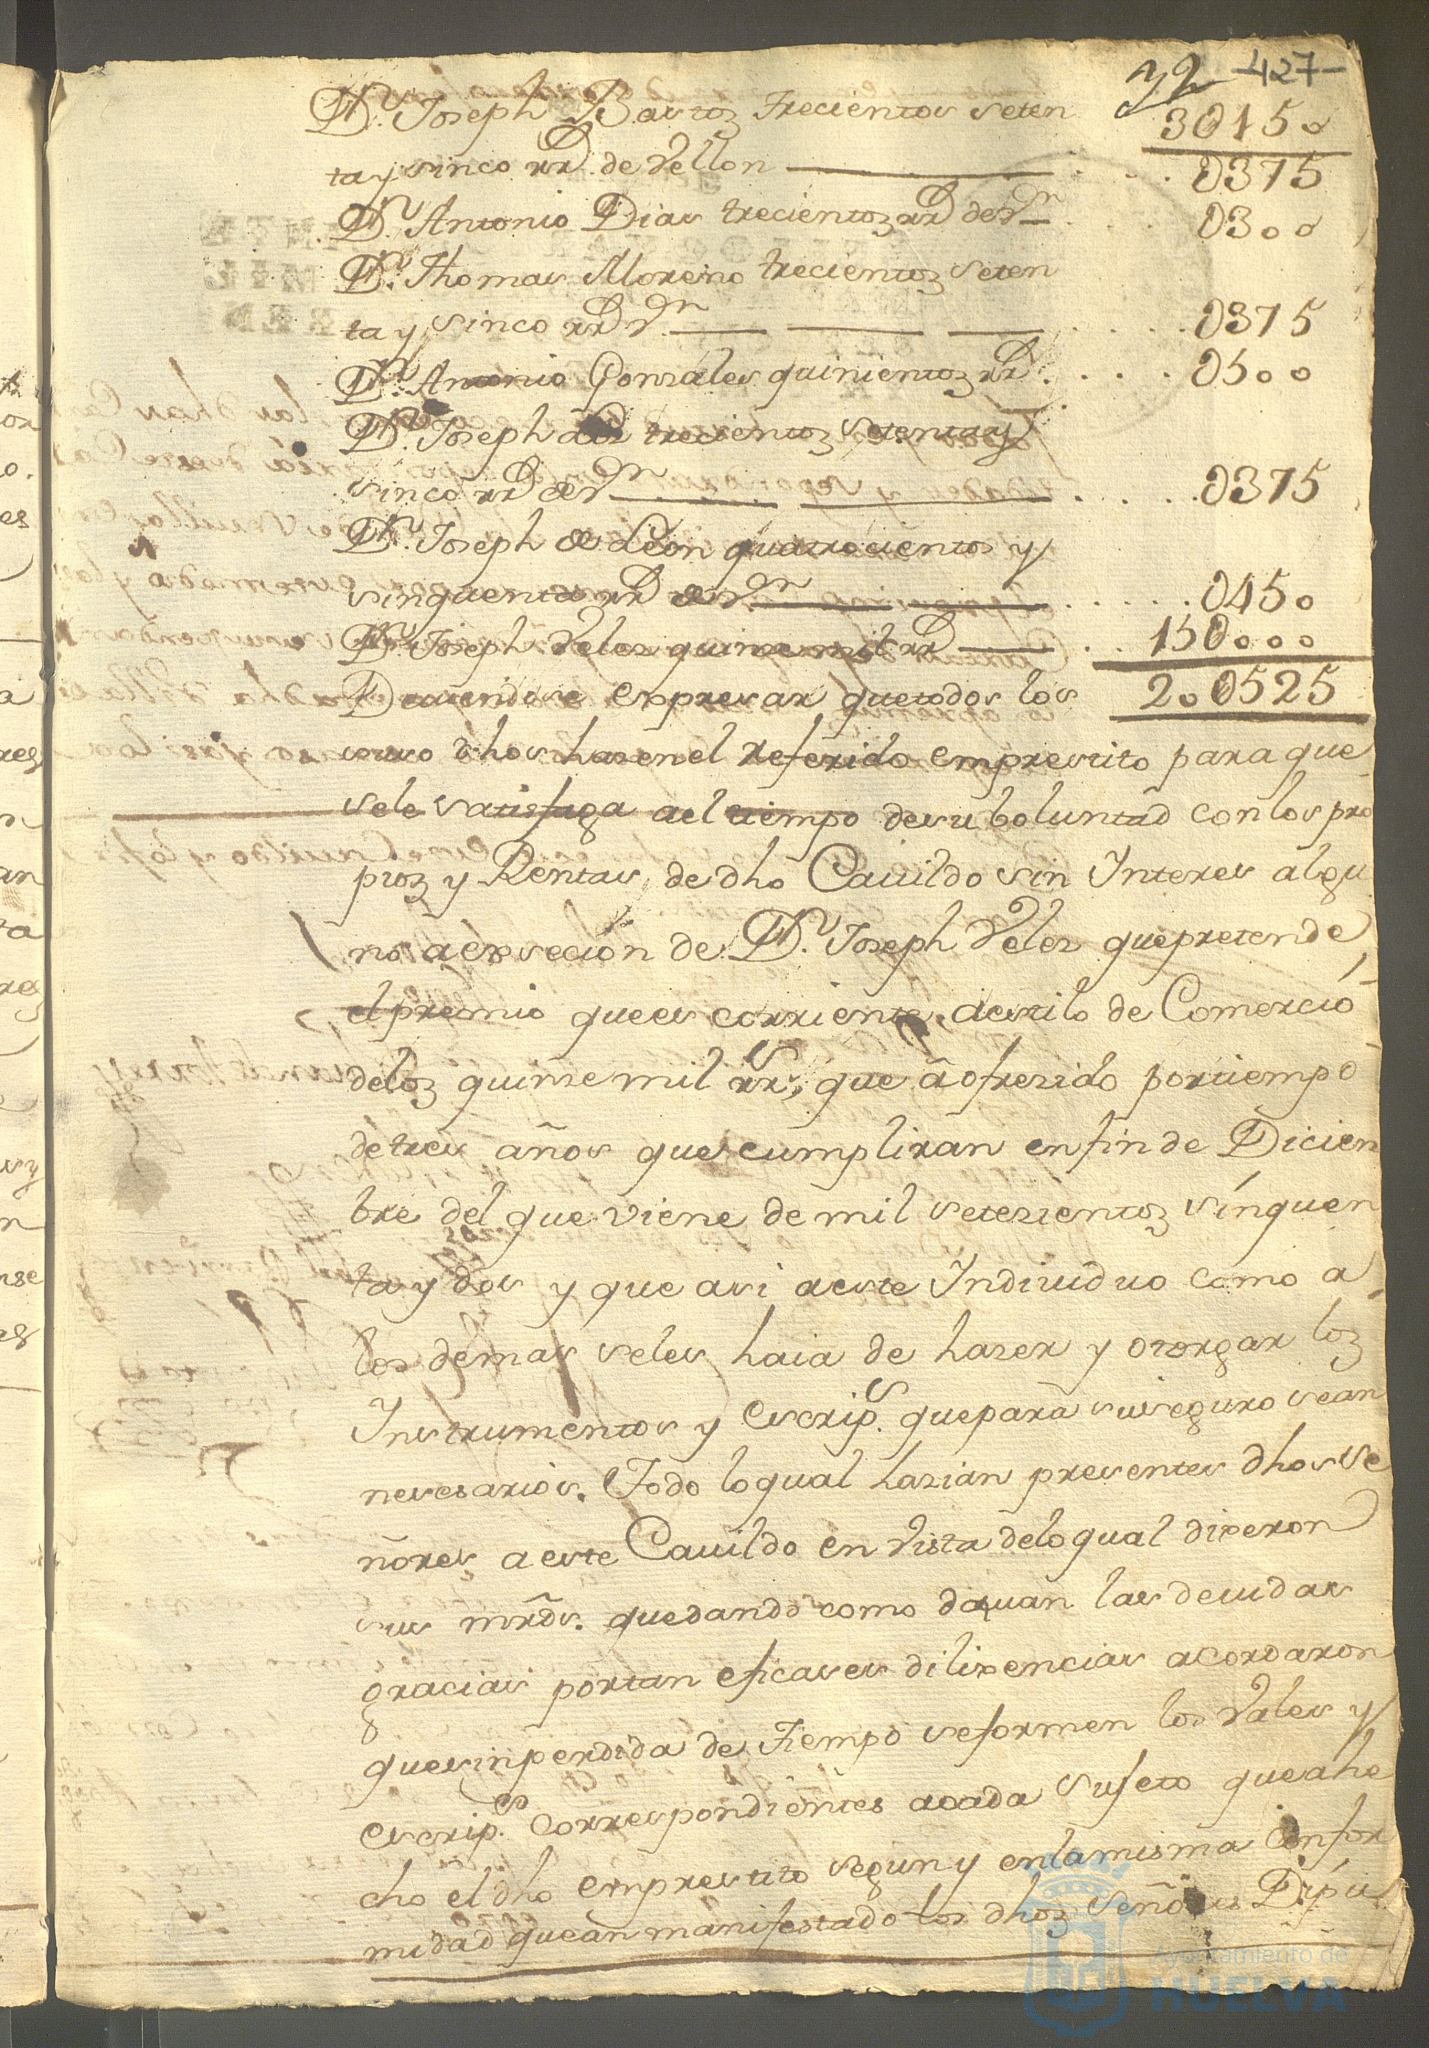 32 427
3U150
Dn. Joseph Bastoz trecientos seten
ta y sinco rrs. de Vellon U375
Dn. Antonio Dias trecientoz rrs de Vn U300
Dn. Thomas Moreno trecientoz seten
ta y sinco rrs Vn U375
Dn. Antonio Gonzales quinientoz rrs U500
Dn. Joseph trecientoz setenta y
sinco rrs de Vn U375
Dn. Joseph de Leon quatrocientos y
sinquenta rrs de Vn U450
Dn. Joseph Velez quinze mil rrs 15U000
Deuiendose expresar que todos los 20U525
suso dhos hasen el referido emprestito para que
se le satisfaga al tiempo de su boluntad con los pro
pioz y Rentas, de dho Cauildo sin Interes algu
no a exsecion de Dn. Joseph Velez que pretende
el premio que es corriente, a estilo de Comercio
de loz quinze mil rrs, que a ofrezido por tiempo
de tres años que cumpliran en fin de Dicien
bre del que viene de mil setezientoz sinquen
ta y dos y que asi a este Indiuiduo como a
los demas se les haia de hazer y otorgar loz
Instrumentos y escrips. que para su seguro sean
nesesarios. Todo lo qual hazian presentes dhos se
ñores a este Cauildo en Vista de lo qual dixeron
sus mrds. quedando como dauan las deuidas
gracias por tan eficases dilixencias acordaron
que sin perdida de tiempo se formen los Vales y
escrips. correspondientes a cada Sujeto que a he
cho el dho emprestito segun y en la misma confor
midad que an manifestado los dhoz Señores Dipu
Ayuntamiento de
HUELVA